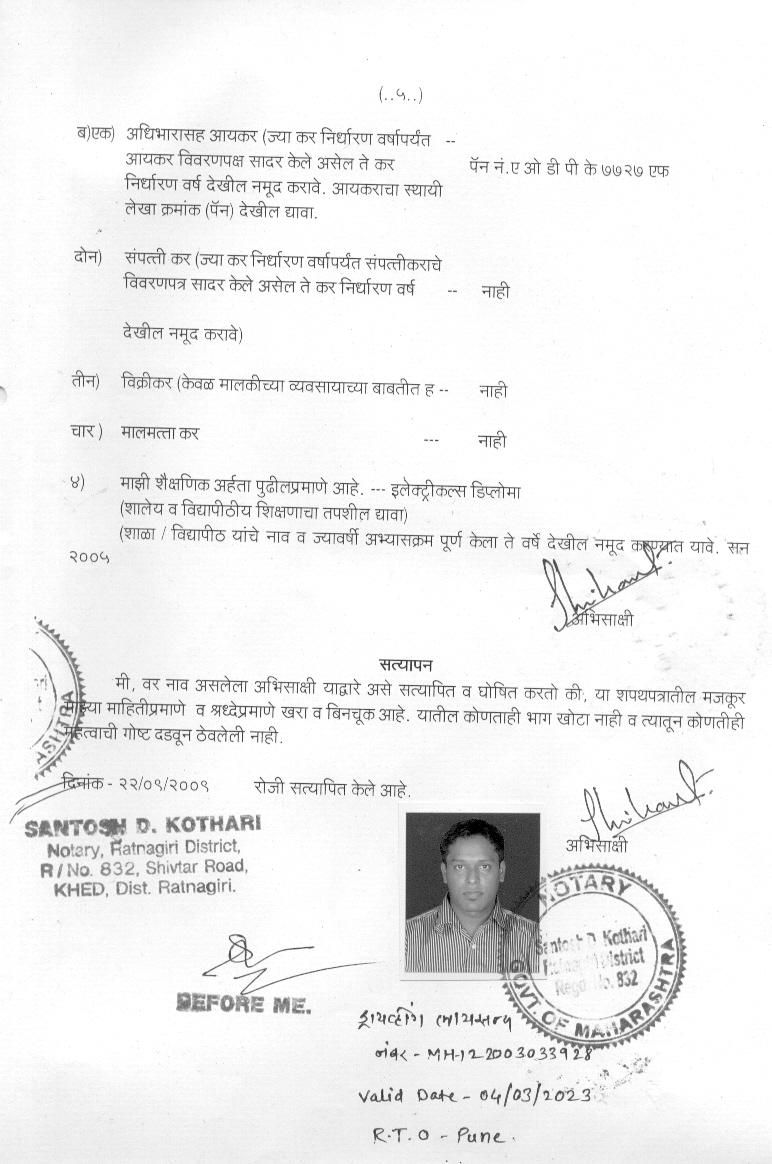 (..५..)
ब)एक) अधिभारासह आयकर (ज्या कर निर्धारण वर्षापर्यंत --
आयकर विवरणपक्ष सादर केले असेल ते कर पॅन नं.ए ओ डी पी के ७७२७ एफ
निर्धारण वर्ष देखील नमूद करावे. आयकराचा स्थायी
लेखा क्रमांक (पॅन) देखील द्यावा.
दोन) संपत्ती कर (ज्या कर निर्धारण वर्षापर्यंत संपत्तीकराचे
विवरणपत्र सादर केले असेल ते कर निर्धारण वर्ष -- नाही
देखील नमूद करावे)
तीन) विक्रीकर (केवळ मालकीच्या व्यवसायाच्या बाबतीत ह -- नाही
चार ) मालमत्ता कर --- नाही
४) माझी शैक्षणिक अर्हता पुढीलप्रमाणे आहे. --- इलेक्ट्रीकल्स डिप्लोमा
(शालेय व विद्यापीठीय शिक्षणाचा तपशील द्यावा)
(शाळा / विद्यापीठ यांचे नाव व ज्यावर्षी अभ्यासक्रम पूर्ण केला ते वर्षे देखील नमूद करण्यात यावे. सन
२००५
अभिसाक्षी
सत्यापन
मी, वर नाव असलेला अभिसाक्षी याद्वारे असे सत्यापित व घोषित करतो की, या शपथपत्रातील मजकूर
माझ्या माहितीप्रमाणे व श्रध्देप्रमाणे खरा व बिनचूक आहे. यातील कोणताही भाग खोटा नाही व त्यातून कोणतीही
महत्वाची गोष्ट दडवून ठेवलेली नाही.
दिनांक - २२/०९/२००९ रोजी सत्यापित केले आहे.
अभिसाक्षी
SANTOSH D. KOTHARI
Notary, Ratnagiri District,
R / No. 832, Shivtar Road,
KHED, Dist. Ratnagiri.
BEFORE ME.
NOTARY
Santosh D. Kothari
Ratnagiri District
Regd. No. 832
GOVT. OF MAHARASHTRA
ड्रायव्हींग लायसन्स
नंबर - MH-12 2003033928
Valid Date - 04/03/2023
R.T.O - Pune.